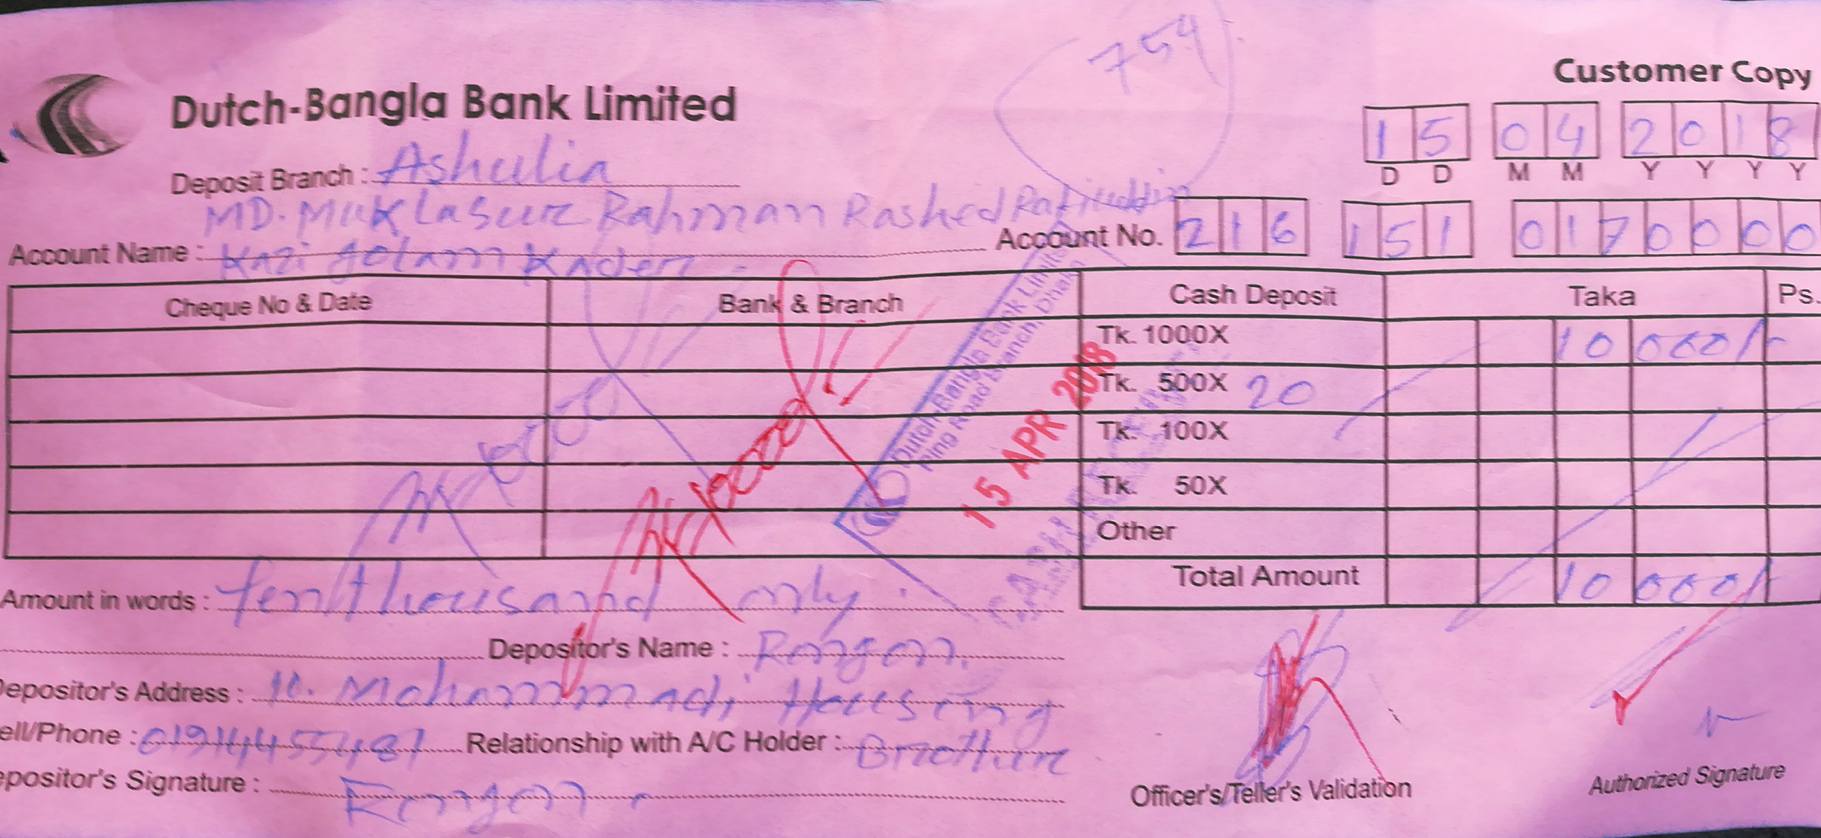 754
Customer Copy
Dutch-Bangla Bank Limited
15 04 2018
D D M M Y Y Y Y
Deposit Branch : Ashulia
MD. Muklasur Rahman Rashed Rafiuddin
Account Name : Kazi Golam Kader
Account No. 216 151 0170000
Cheque No & Date Bank & Branch Cash Deposit Taka Ps.
Tk. 1000X 10 000/-
Tk. 500X 20
Tk. 100X
Tk. 50X
Other
Total Amount 10 000/-
Dutch-Bangla Bank Limited
Ring Road Branch, Dhaka
15 APR 2018
Amount in words : Ten thousand only.
Depositor's Name : Rongon.
Depositor's Address : 10. Mohammadi Housing
ell/Phone : 01914455487 Relationship with A/C Holder : Brother
epositor's Signature : Rongon
Officer's/Teller's Validation
Authorized Signature